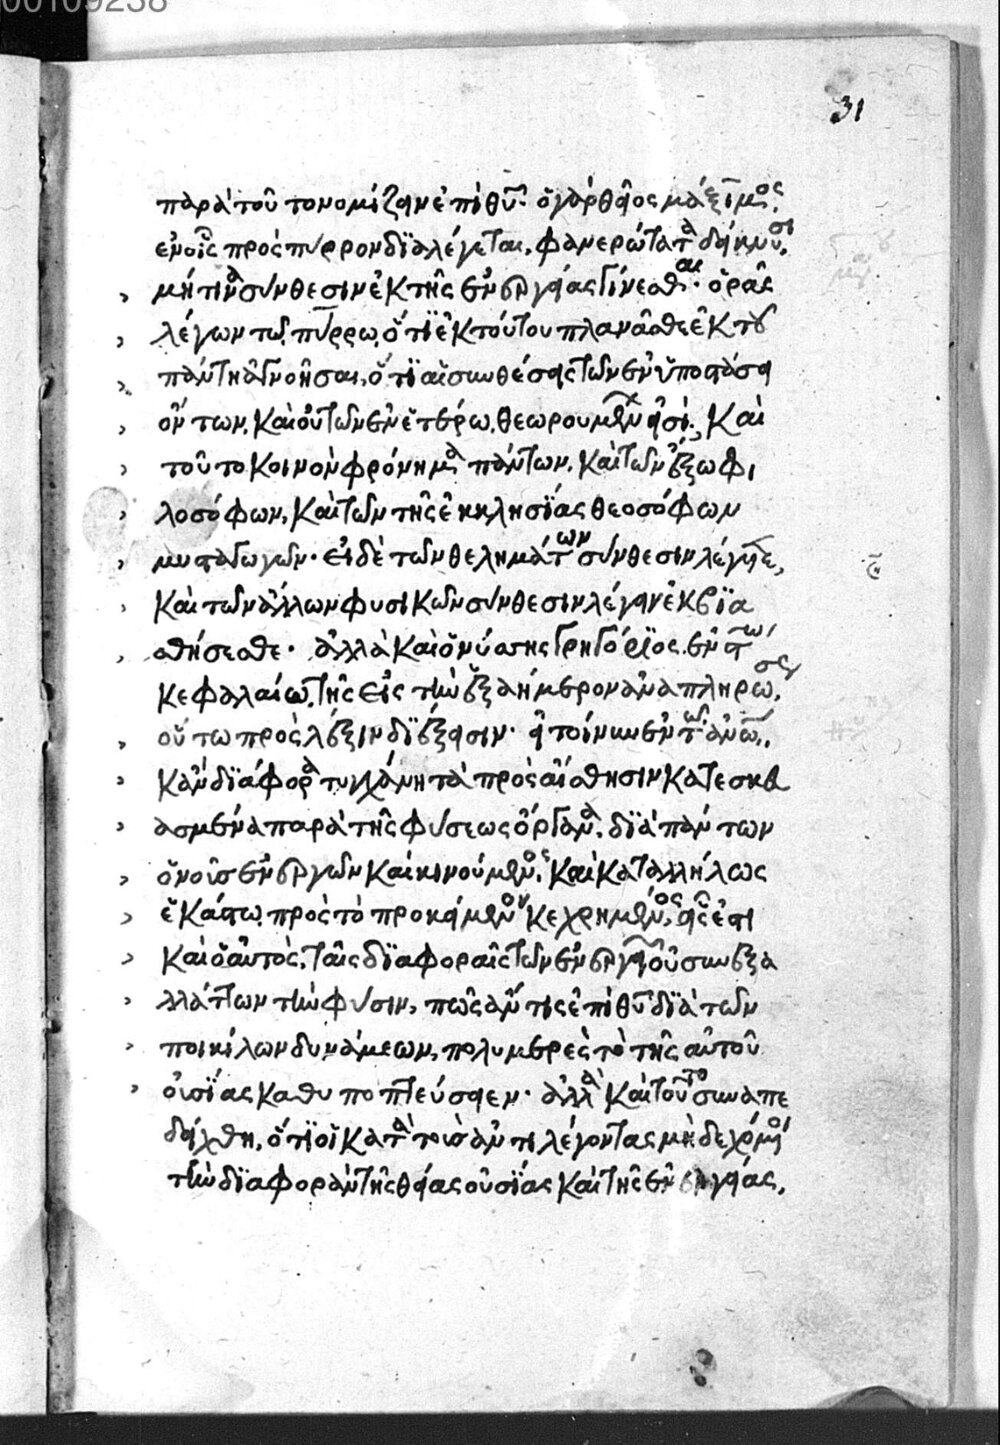 00109238
31
παρὰ τοῦτο νομίζειν ἐπὶ θῦ· ὁ γὰρ θεῖος μάξιμος,
ἐν οἷς πρὸς πύρρον διαλέγεται, φανερώτατα δείκνυσι,
μήτινα σύνθεσιν ἐκ τῆς ἐνεργείας γίνεσθαι· ὁρᾶς
λέγων τῷ πύρρῳ, ὅτι ἐκ τούτου πλανᾶσθε ἐκ τοῦ
πάντη ἀγνοῆσαι, ὅτι αἱ συνθέσεις τῶν ἐν ὑποστάσει
ὄντων, καὶ οὐ τῶν ἐν ἑτέρῳ θεωρουμένων εἰσί· καὶ
τοῦτο κοινὸν φρόνημα πάντων, καὶ τῶν ἔξω φι
λοσόφων, καὶ τῶν τῆς ἐκκλησίας θεοσόφων
μυσταγωγῶν· εἰ δὲ τῶν θελημάτων σύνθεσιν λέγετε,
καὶ τῶν ἄλλων φυσικῶν σύνθεσιν λέγειν ἐκβια
σθήσεσθε· ἀλλὰ καὶ ὁ νύσσης γρηγόριος ἐν τῷ
κεφαλαίῳ τῆς εἰς τὴν ἑξαήμερον ἀναπληρώσεως,
οὕτω πρὸς λέξιν διέξεισιν· εἰ τοίνυν ἐν τῷ ἀνῳ,
κἂν διάφορα τυγχάνη τὰ πρὸς αἴσθησιν κατεσκευ
ασμένα παρὰ τῆς φύσεως ὄργανα, διὰ πάντων
ὁ νοῦς ἐνεργῶν καὶ κινούμενος, καὶ καταλλήλως
ἑκάστῳ πρὸς τὸ προκείμενον κεχρημένος, εἷς ἐστι
καὶ ὁ αὐτὸς, ταῖς διαφοραῖς τῶν ἐνεργειῶν οὐ συνεξα
λλάττων τὴν φύσιν, πῶς ἄν τις ἐπὶ θῦ διὰ τῶν
ποικίλων δυνάμεων, πολυμερὲς τὸ τῆς αὐτοῦ
οὐσίας καθυποπτεύσειεν· ἀλλὰ καὶ τοῦτο συναπε
δείχθη, ὅτι οἱ κατὰ τοὺς ἀντιλέγοντας μὴ δεχόμενοι
τὴν διαφορὰν τῆς θείας οὐσίας καὶ τῆς ἐνεργείας,